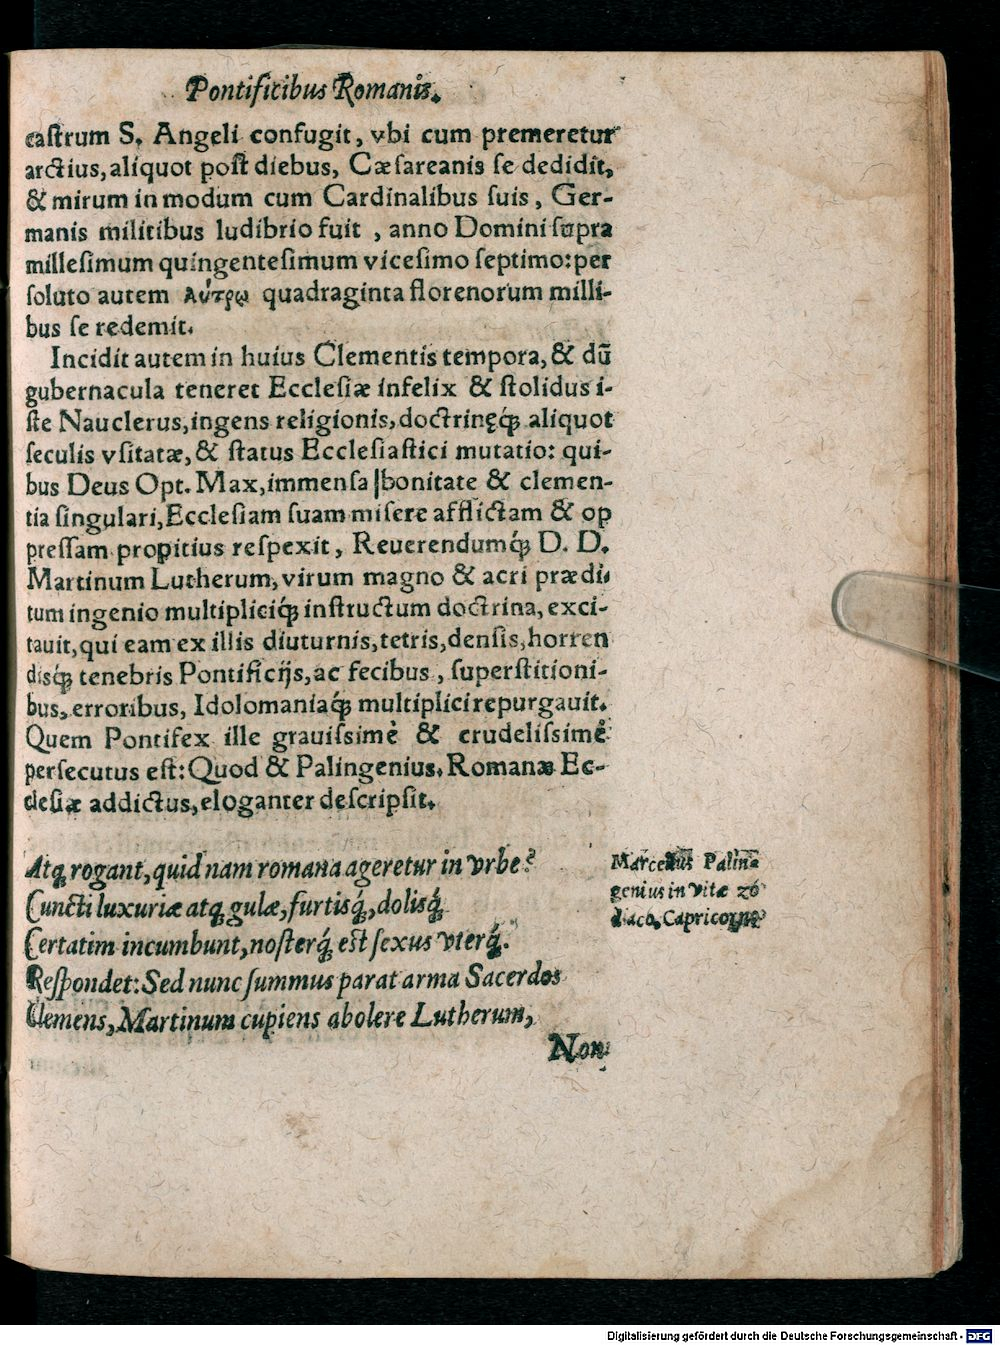 Pontificibus Romanis.
castrum S. Angeli confugit, vbi cum premeretur
arctius, aliquot post diebus, Cæsareanis se dedidit,
& mirum in modum cum Cardinalibus suis, Ger-
manis militibus ludibrio fuit , anno Domini supra
millesimum quingentesimum vicesimo septimo: per
soluto autem λύτρῳ quadraginta florenorum milli-
bus se redemit.
Incidit autem in huius Clementis tempora, & dū
gubernacula teneret Ecclesiæ infelix & stolidus i-
ste Nauclerus, ingens religionis, doctrinęq́; aliquot
seculis vsitatæ, & status Ecclesiastici mutatio: qui-
bus Deus Opt. Max, immensa |bonitate & clemen-
tia singulari, Ecclesiam suam misere afflictam & op
pressam propitius respexit, Reuerendumq́; D. D.
Martinum Lutherum, virum magno & acri prædi-
tum ingenio multipliciq́; instructum doctrina, exci-
tauit, qui eam ex illis diuturnis, tetris, densis, horren
disq́; tenebris Pontificijs, ac fecibus , superstitioni-
bus, erroribus, Idolomaniaq́; multiplici repurgauit.
Quem Pontifex ille grauissimè & crudelissimè
persecutus est: Quod & Palingenius, Romanæ Ec-
clesiæ addictus, eloganter descripsit.
Atq; rogant, quid nam romana ageretur in vrbe?
Cuncti luxuriæ atq; gulæ, furtisq́;, dolisq́;
Certatim incumbunt, nosterq́; est sexus vterq́;.
Respondet: Sed nunc summus parat arma Sacerdos
Clemens, Martinum cupiens abolere Lutherum,
Marcellus Palin-
genius in vitæ zo
diaco, Capricorno
Non
Digitalisierung gefördert durch die Deutsche Forschungsgemeinschaft - DFG